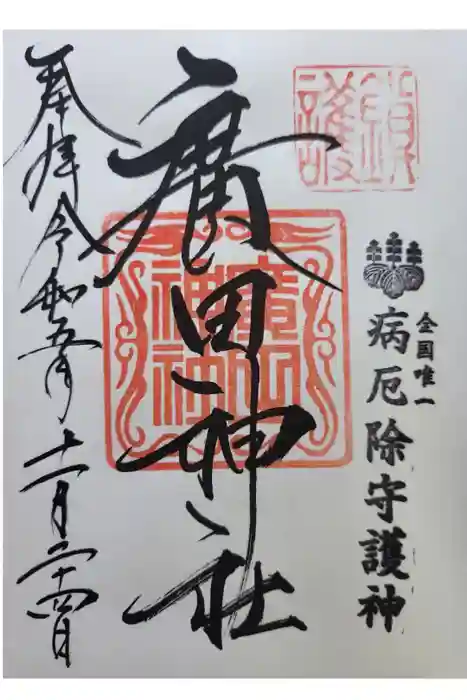 鎮護
全国唯一
病厄除守護神
廣田神社
奉拝 令和五年十一月二十四日